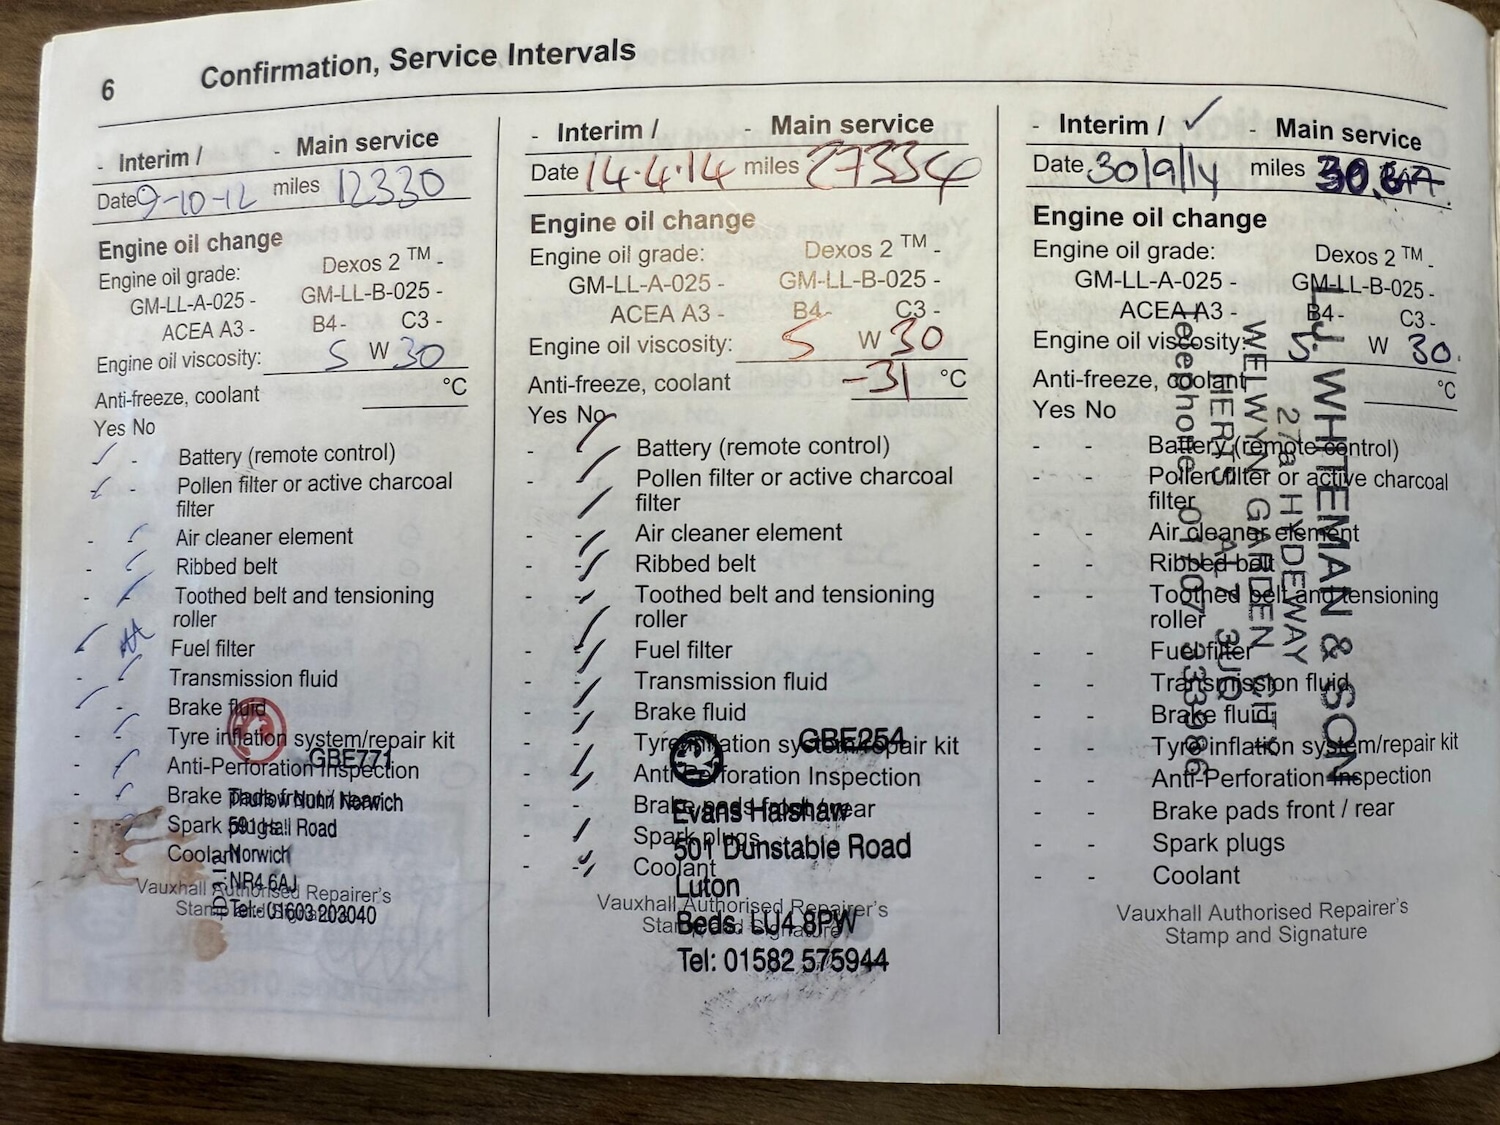 6
Confirmation, Service Intervals
- Interim / - Main service
Date 9-10-12 miles 12330
Engine oil change
Engine oil grade: Dexos 2 TM -
GM-LL-A-025 - GM-LL-B-025 -
ACEA A3 - B4 - C3 -
Engine oil viscosity: 5 W 30
Anti-freeze, coolant °C
Yes No
- Battery (remote control)
- Pollen filter or active charcoal
filter
- Air cleaner element
- Ribbed belt
- Toothed belt and tensioning
roller
Fuel filter
- Transmission fluid
Brake fluid
- Tyre inflation system/repair kit
- Anti-Perforation Inspection
- Brake pads front / rear
- Spark plugs
- - Coolant
Vauxhall Authorised Repairer's
Stamp and Signature
GBE771
Thurlow Nunn Norwich
591 Hall Road
Norwich
NR4 6AJ
Tel:- 01603 203040
- Interim / - Main service
Date 14.4.14 miles 27334
Engine oil change
Engine oil grade: Dexos 2 TM -
GM-LL-A-025 - GM-LL-B-025 -
ACEA A3 - B4 - C3 -
Engine oil viscosity: 5 W 30
Anti-freeze, coolant -31 °C
Yes No
- Battery (remote control)
- Pollen filter or active charcoal
filter
- - Air cleaner element
- - Ribbed belt
- - Toothed belt and tensioning
roller
- - Fuel filter
- - Transmission fluid
- - Brake fluid
- - Tyre inflation system/repair kit
- - Anti-Perforation Inspection
- - Brake pads front / rear
- - Spark plugs
- - Coolant
Vauxhall Authorised Repairer's
Stamp and Signature
GBE254
Evans Halshaw
501 Dunstable Road
Luton
Beds. LU4 8PW
Tel: 01582 575944
- Interim / ✓ - Main service
Date 30/9/14 miles
Engine oil change
Engine oil grade: Dexos 2 TM -
GM-LL-A-025 - GM-LL-B-025 -
ACEA A3 - B4 - C3 -
Engine oil viscosity: 5 W 30.
Anti-freeze, coolant °C
Yes No
- - Battery (remote control)
- - Pollen filter or active charcoal
filter
- - Air cleaner element
- - Ribbed belt
- - Toothed belt and tensioning
roller
- - Fuel filter
- - Transmission fluid
- - Brake fluid
- - Tyre inflation system/repair kit
- - Anti-Perforation Inspection
- - Brake pads front / rear
- - Spark plugs
- - Coolant
Vauxhall Authorised Repairer's
Stamp and Signature
L.J. WHITEMAN & SON
27a HYDEWAY
WELWYN GARDEN CITY
HERTS AL7 3UQ
Telephone 01707 333986